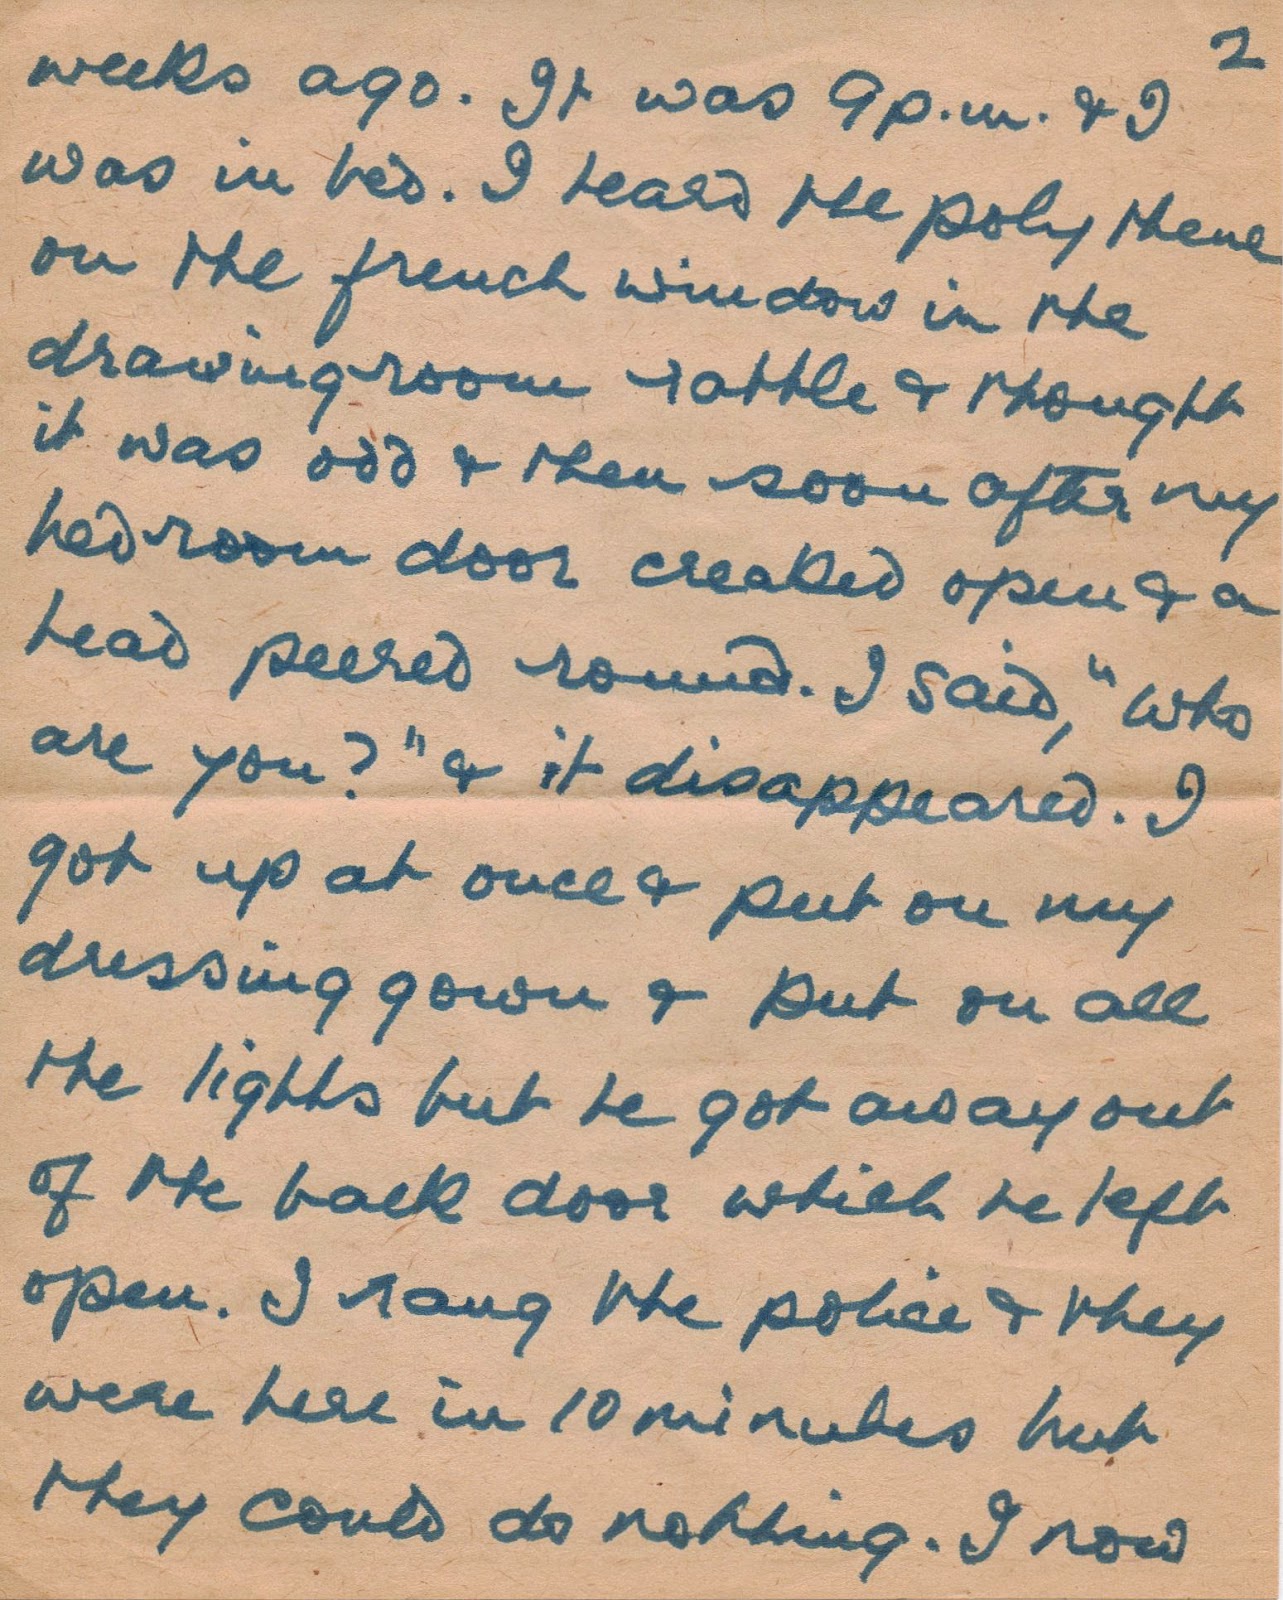 2
weeks ago. It was 9 p.m. & I
was in bed. I heard the polythene
on the french window in the
drawingroom rattle & thought
it was odd & then soon after my
bedroom door creaked open & a
head peered round. I said, "who
are you?" & it disappeared. I
got up at once & put on my
dressing gown & put on all
the lights but he got away out
of the back door which he left
open. I rang the police & they
were here in 10 minutes but
they could do nothing. I now